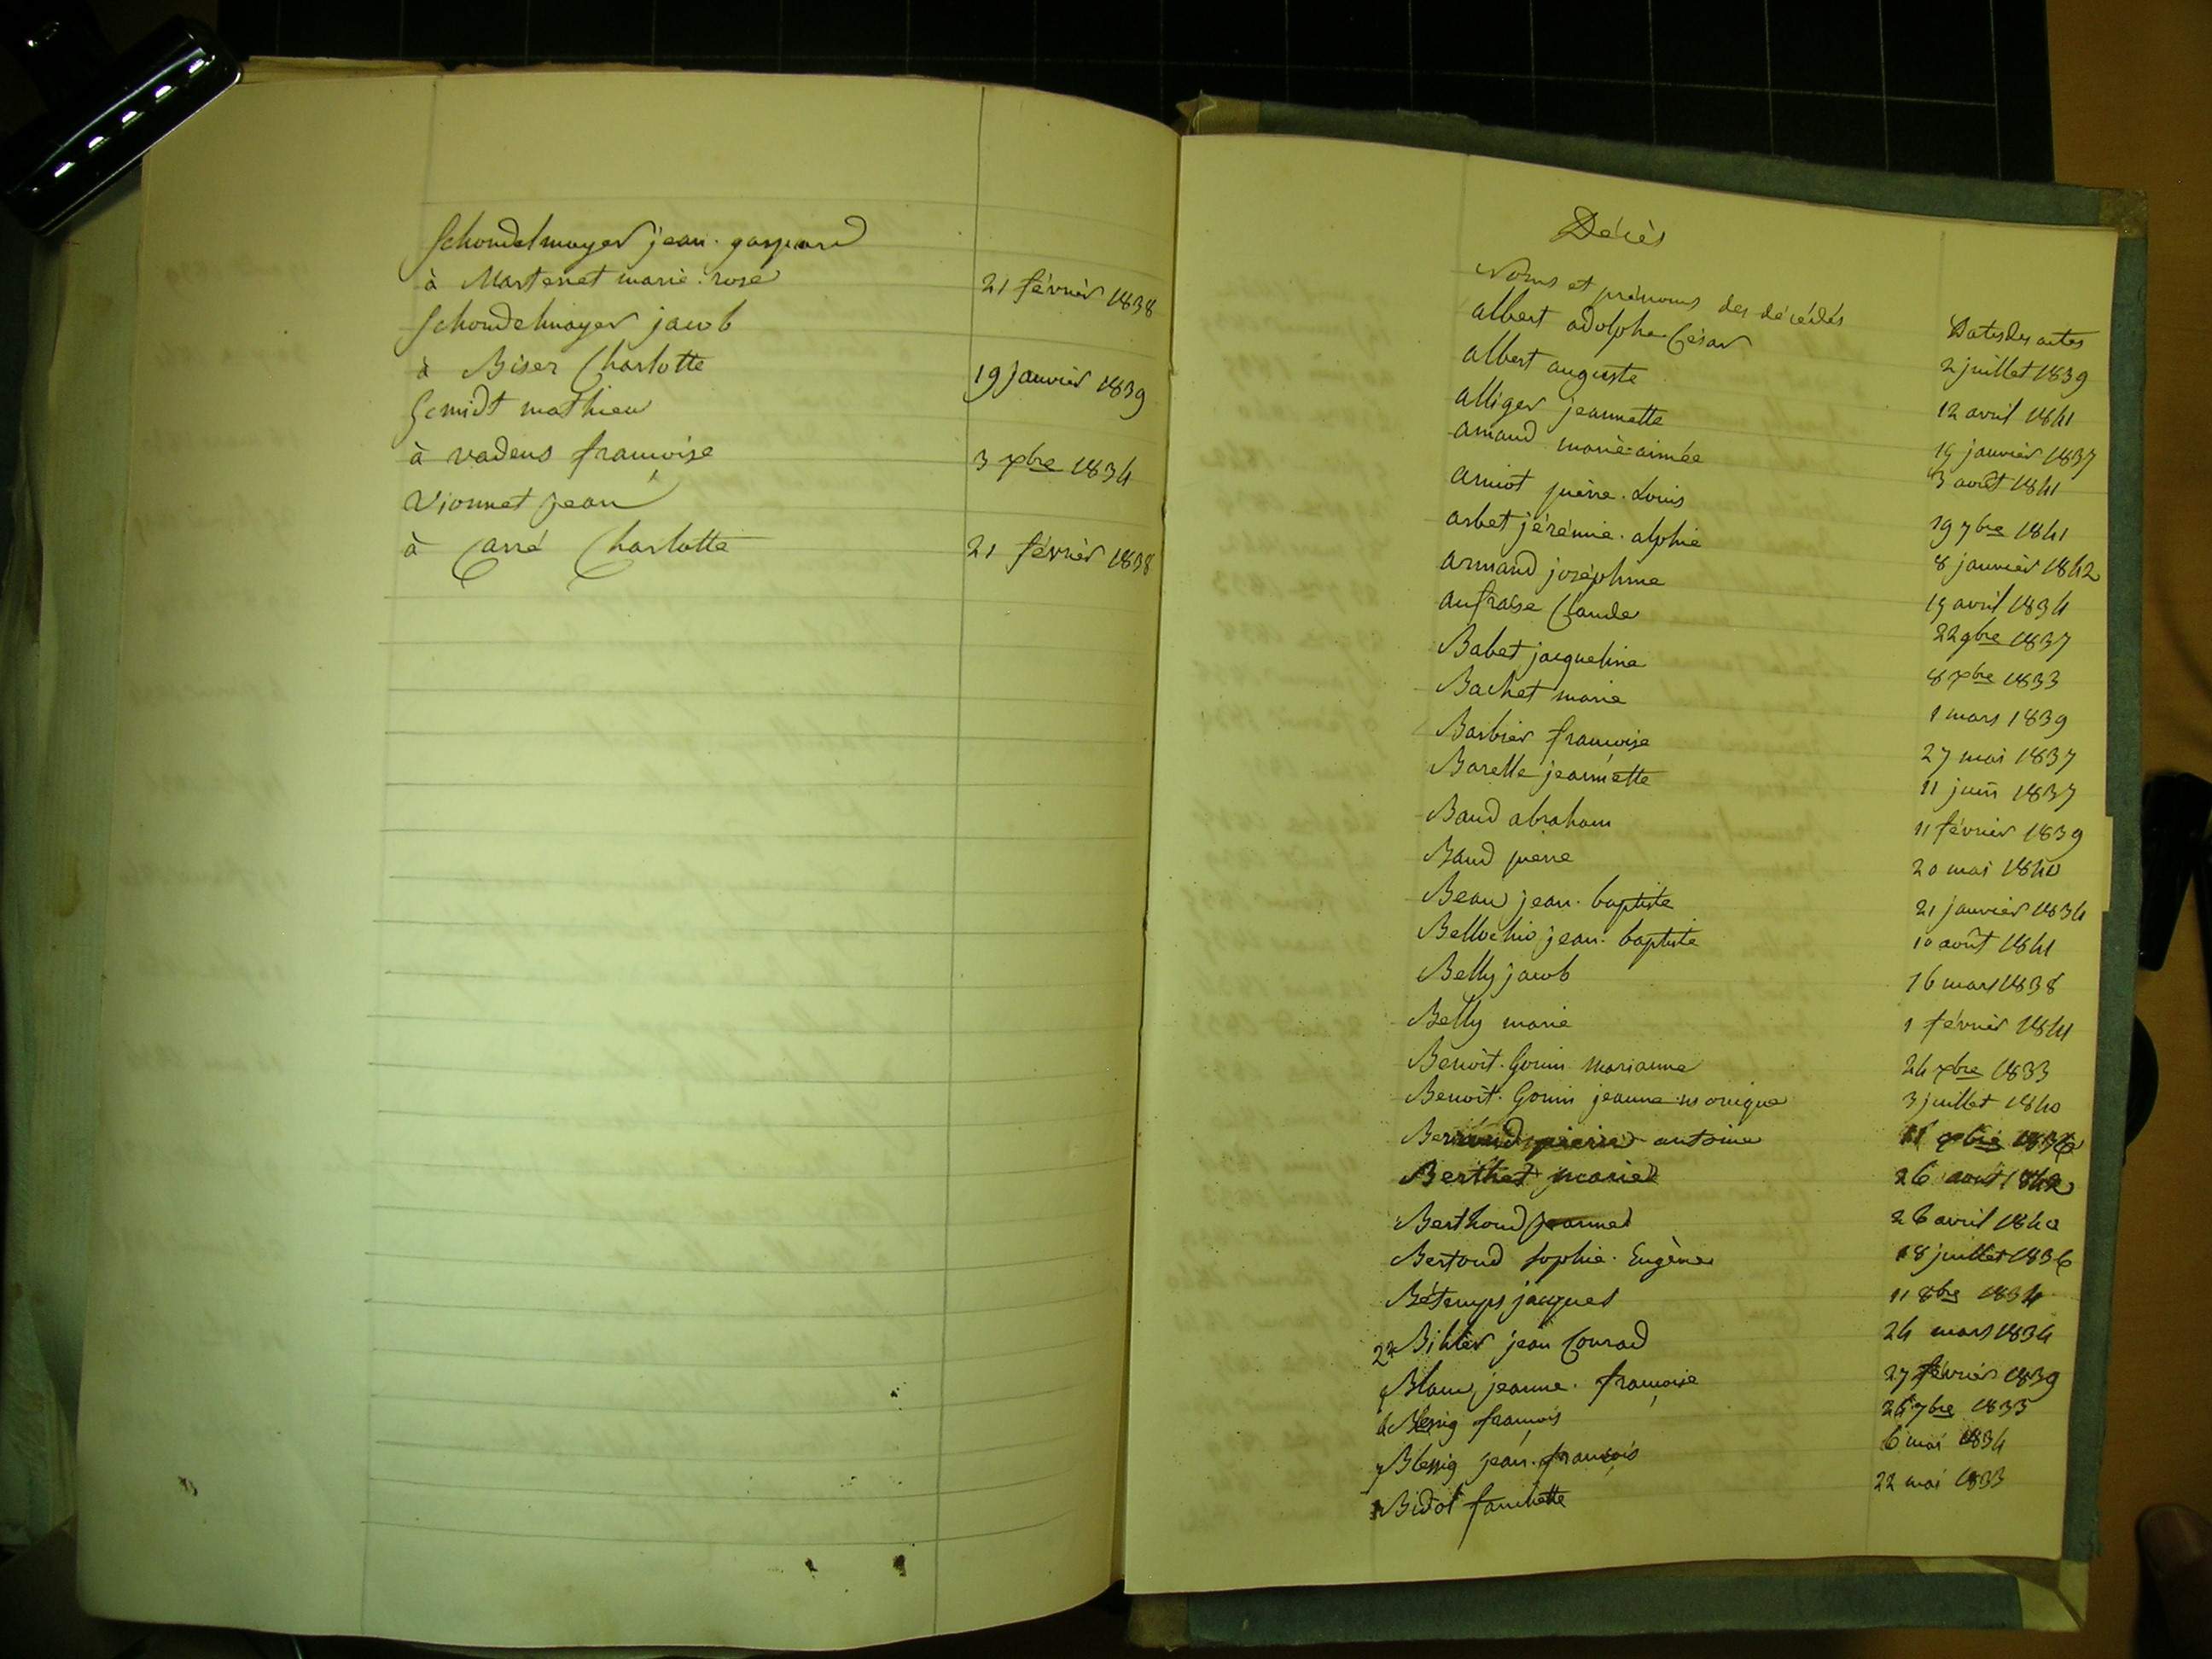 Schondelmayer jean. gaspard
à Martenet marie. rose 21 février 1838
Schondelmayer jacob
à Biser Charlotte 19 janvier 1839
Scmidt mathieu
à vadens françoise 3 xbre 1834
Vionnet jean
à Carré Charlotte 21 février 1838
Décès
Noms et prénoms des décédés Dates des actes
albert adolphe César 2 juillet 1839
albert auguste 12 avril 1841
alliger jeannette 19 janvier 1837
amaud marie-aimée 3 août 1841
amiot pierre. Louis 19 7bre 1841
arbet jérémie. alphie 8 janvier 1842
armand joséphine 19 avril 1834
aufraise Claude 22 9bre 1837
Babet jacqueline 8 xbre 1833
Bachet marie 1 mars 1839
Barbier françoise 27 mai 1837
Barelle jeannette 11 juin 1837
Baud abraham 11 février 1839
Baud pierre 20 mai 1840
Beau jean. baptiste 21 janvier 1834
Bellochio jean. baptiste 10 août 1841
Belly jacob 16 mars 1838
Belly marie 1 février 1841
Benoit. Gonin marianne 24 xbre 1833
Benoit. Gonin jeanne. monique 3 juillet 1840
antoine 11 1836
Berthet marie 26 août 1842
Berthoud jeanne 26 avril 1840
Bertoud sophie. Eugène 18 juillet 1836
Bétemps jacques 11 8bre 1834
Bihler jean Conrad 24 mars 1834
Blanc jeanne. françoise 27 février 1839
Blessig françois 26 7bre 1835
Blessig jean. françois 6 mai 1834
Bidot fanchette 22 mai 1833